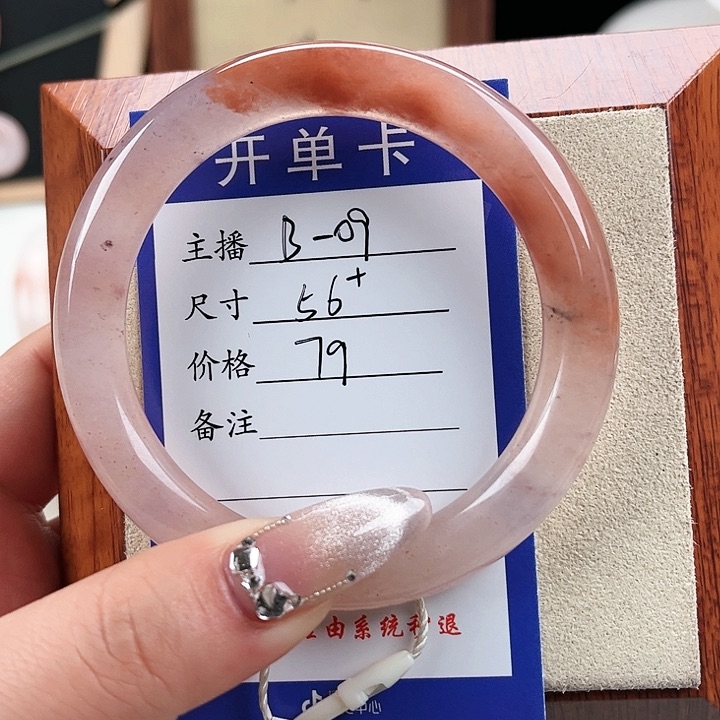 开单卡
主播 B-09
尺寸 56+
价格 79
备注
由系统秒退
中心